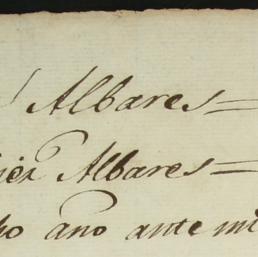 Albares=
Albares=
año ante mi